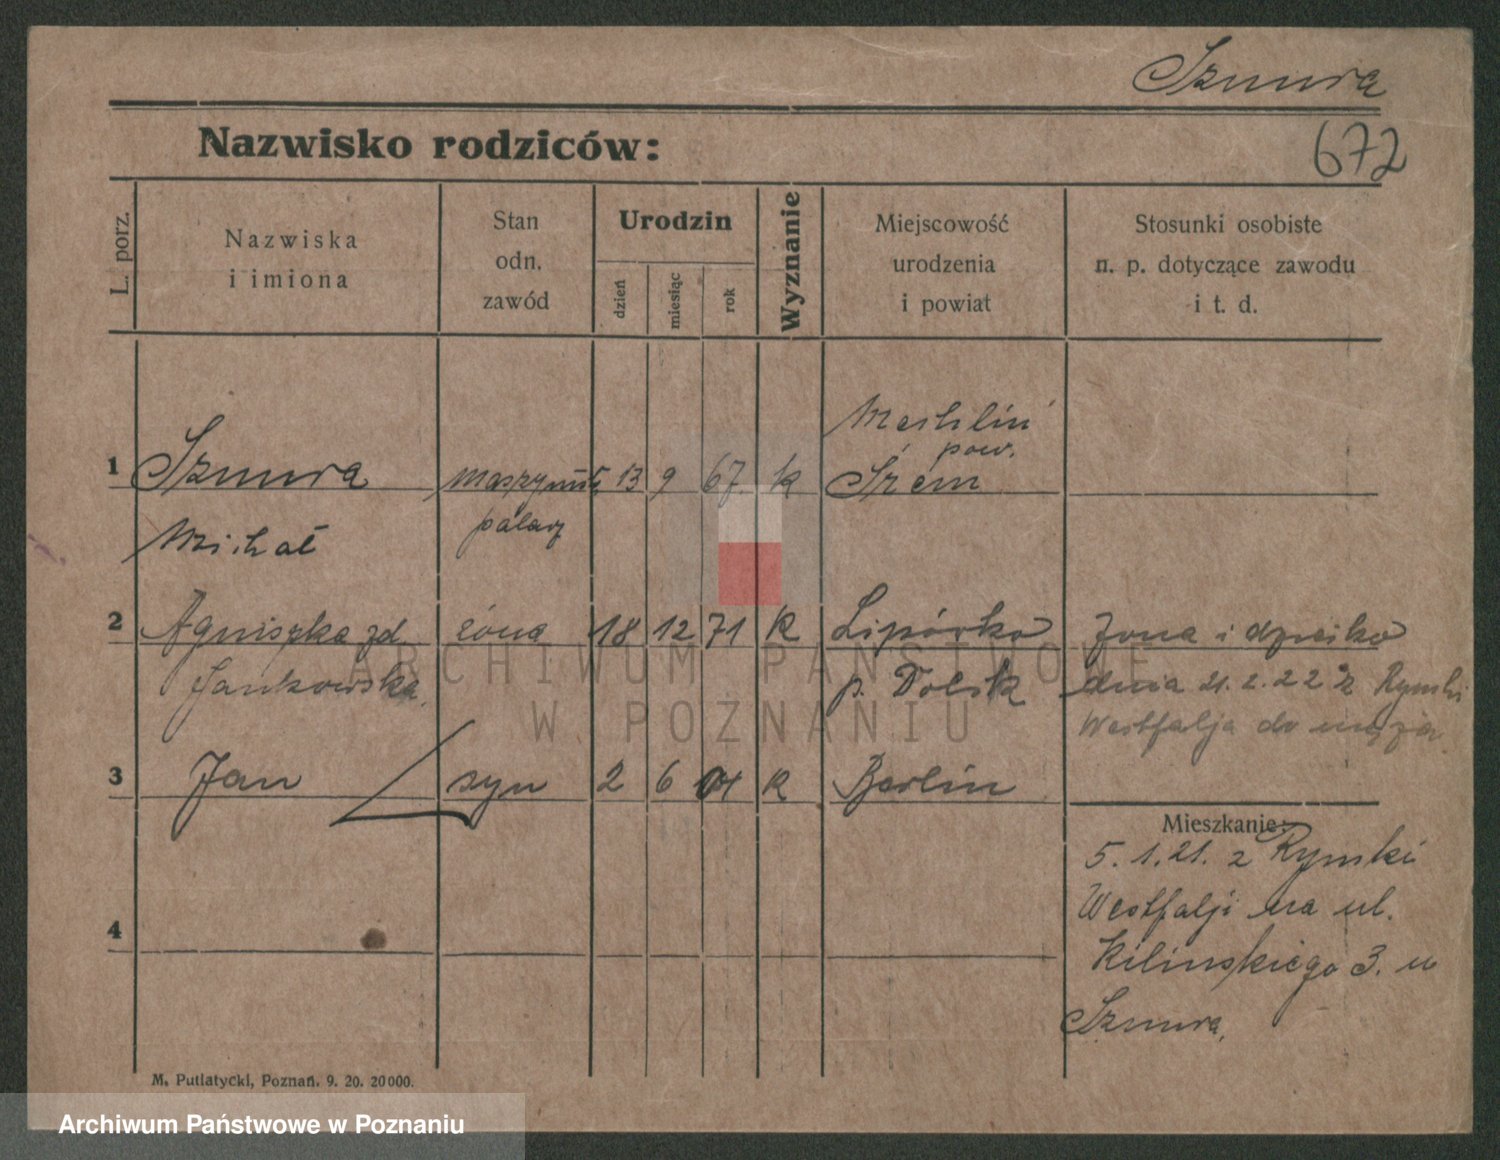 Szmura
672
Nazwisko rodziców:
L. porz.
Nazwiska
i imiona
Stan
odn.
zawód
Urodzin
dzień
miesiąc
rok
Wyznanie
Miejscowość
urodzenia
i powiat
Stosunki osobiste
n. p. dotyczące zawodu
i t. d.
Mechlin
pow.
1 Szmura 13 9 67. k Śrem
Michał palacz
2 Agniszka zd żona 18 12 71 k Lipówka Żona i dziecko
Jankowska p. Dolsk dnia 21.2.22 z
Westfalja do męża.
3 Jan syn 2 6 04 k Berlin
Mieszkanie:
5.1.21. z Rynski
Westfalji na ul.
4
Kilinskiego 3. u
Szmura,
M. Putiatycki, Poznań. 9. 20. 20000.
ARCHIWUM PAŃSTWOWE
W POZNANIU
Archiwum Państwowe w Poznaniu